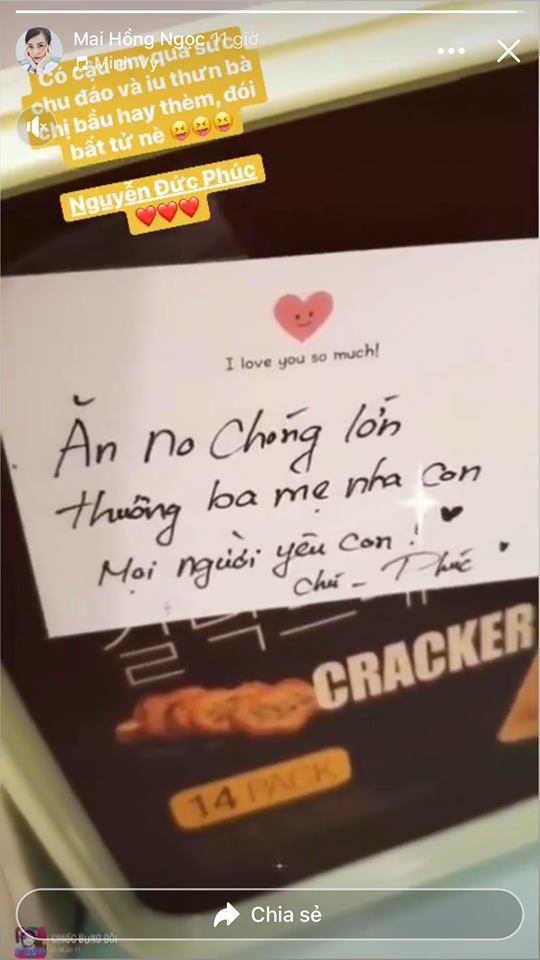 Mai Hồng Ngọc 11 giờ
Minh Vy
Có cậu em quá sức
chu đáo và iu thưn bà
chị bầu hay thèm, đói
bất tử nè 😝😝😝
Nguyễn Đức Phúc
❤️❤️❤️
I love you so much!
Ăn no Chóng lớn
thương ba mẹ nha con
Mọi người yêu con!
Chú - Phúc
CRACKER
14 PACK
Chia sẻ
CHIẾC BỤNG ĐÓI